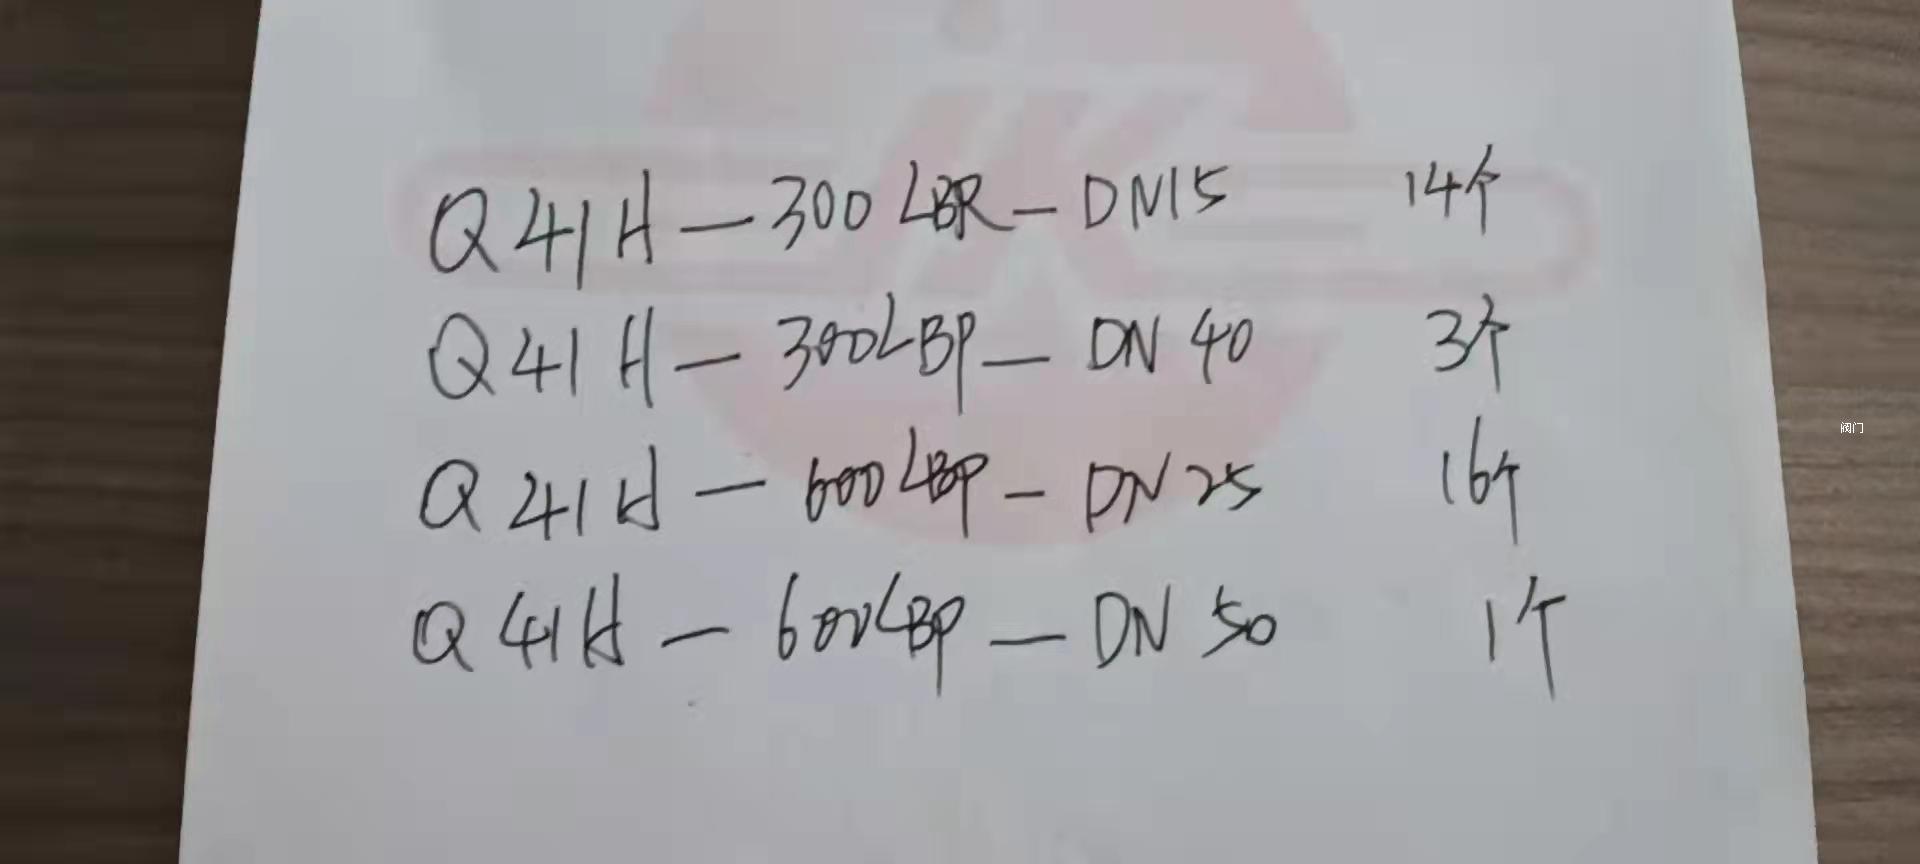 Q41H-300LBR-DN15 14个
Q41H-300LBP-DN40 3个
Q41H-600LBP-DN25 16个
Q41H-600LBP-DN50 1个
阀门